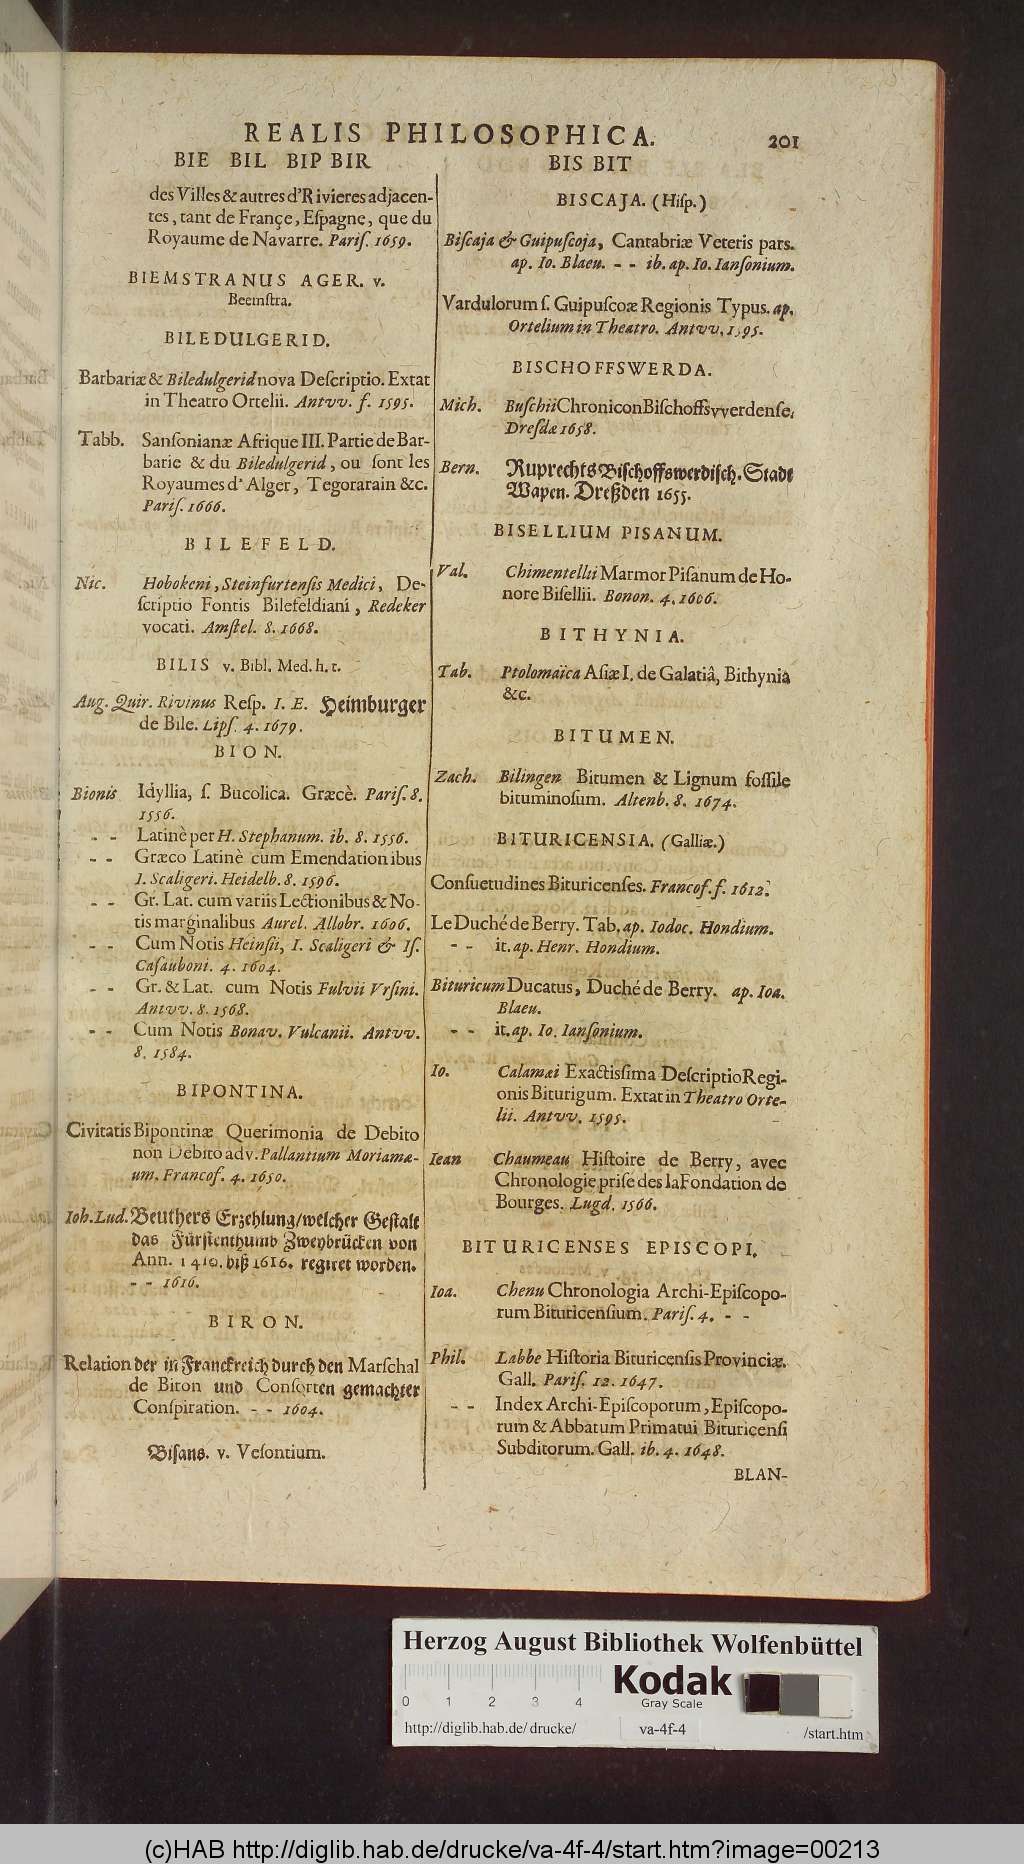 REALIS PHILOSOPHICA. 201
BIE BIL BIP BIR
des Villes & autres d'Rivieres adjacen-
tes, tant de Françe, Eſpagne, que du
Royaume de Navarre. Pariſ. 1659.
BIEMSTRANUS AGER. v.
Beemſtra.
BILEDULGERID.
Barbariæ & Biledulgerid nova Deſcriptio. Extat
in Theatro Ortelii. Antvv. f. 1595.
Tabb. Sanſonianæ Afrique III. Partie de Bar-
barie & du Biledulgerid, ou ſont les
Royaumes d'Alger, Tegorarain &c.
Pariſ. 1666.
BILEFELD.
Nic. Hobokeni, Steinfurtenſis Medici, De-
ſcriptio Fontis Bilefeldiani, Redeker
vocati. Amſtel. 8. 1668.
BILIS v. Bibl. Med. h. t.
Aug. Quir. Rivinus Reſp. I. E. Heimburger
de Bile. Lipſ. 4. 1679.
BION.
Bionis Idyllia, ſ. Bucolica. Græcè. Pariſ. 8.
1556.
- - Latinè per H. Stephanum. ib. 8. 1556.
- - Græco Latinè cum Emendationibus
I. Scaligeri. Heidelb. 8. 1596.
- - Gr. Lat. cum variis Lectionibus & No-
tis marginalibus Aurel. Allobr. 1606.
- - Cum Notis Heinſii, I. Scaligeri & Iſ.
Caſauboni. 4. 1604.
- - Gr. & Lat. cum Notis Fulvii Vrſini.
Antvv. 8. 1568.
- - Cum Notis Bonav. Vulcanii. Antvv.
8. 1584.
BIPONTINA.
Civitatis Bipontinæ Querimonia de Debito
non Debito adv. Pallantium Moriamæ-
um. Francof. 4. 1650.
Ioh. Lud. Beuthers Erzehlung/welcher Geſtalt
das Fürſtenthumb Zweybrücken von
Ann. 1410. biß 1616. regiret worden.
- - 1616.
BIRON.
Relation der in Franckreich durch den Marſchal
de Biron und Conſorten gemachter
Conſpiration. - - 1604.
Biſans. v. Veſontium.
BIS BIT
BISCAJA. (Hiſp.)
Biſcaja & Guipuſcoja, Cantabriæ Veteris pars.
ap. Io. Blaeu. - - ib. ap. Io. Ianſonium.
Vardulorum ſ. Guipuſcoæ Regionis Typus. ap.
Ortelium in Theatro. Antvv. 1595.
BISCHOFFSWERDA.
Mich. Buſchii Chronicon Biſchoffsvverdenſe,
Dreſdæ 1658.
Bern. Ruprechts Biſchoffswerdiſch. Stadt
Wapen. Dreßden 1655.
BISELLIUM PISANUM.
Val. Chimentellii Marmor Piſanum de Ho-
nore Biſellii. Bonon. 4. 1606.
BITHYNIA.
Tab. Ptolomaïca Aſiæ I. de Galatiâ, Bithynia
&c.
BITUMEN.
Zach. Bilingen Bitumen & Lignum foſſile
bituminoſum. Altenb. 8. 1674.
BITURICENSIA. (Galliæ.)
Conſuetudines Bituricenſes. Francof. f. 1612.
Le Duché de Berry. Tab. ap. Iodoc. Hondium.
- - it. ap. Henr. Hondium.
Bituricum Ducatus, Duché de Berry. ap. Ioa.
Blaeu.
- - it. ap. Io. Ianſonium.
Io. Calamæi Exactisſima Deſcriptio Regi-
onis Biturigum. Extat in Theatro Orte-
lii. Antvv. 1595.
Iean Chaumeau Hiſtoire de Berry, avec
Chronologie priſe des la Fondation de
Bourges. Lugd. 1566.
BITURICENSES EPISCOPI.
Ioa. Chenu Chronologia Archi-Epiſcopo-
rum Bituricenſium. Pariſ. 4. - -
Phil. Labbe Hiſtoria Bituricenſis Provinciæ.
Gall. Pariſ. 12. 1647.
- - Index Archi-Epiſcoporum, Epiſcopo-
rum & Abbatum Primatui Bituricenſi
Subditorum. Gall. ib. 4. 1648.
BLAN-
Herzog August Bibliothek Wolfenbüttel
0 1 2 3 4
Kodak
Gray Scale
http://diglib.hab.de/drucke/ va-4f-4 /start.htm
(c)HAB http://diglib.hab.de/drucke/va-4f-4/start.htm?image=00213